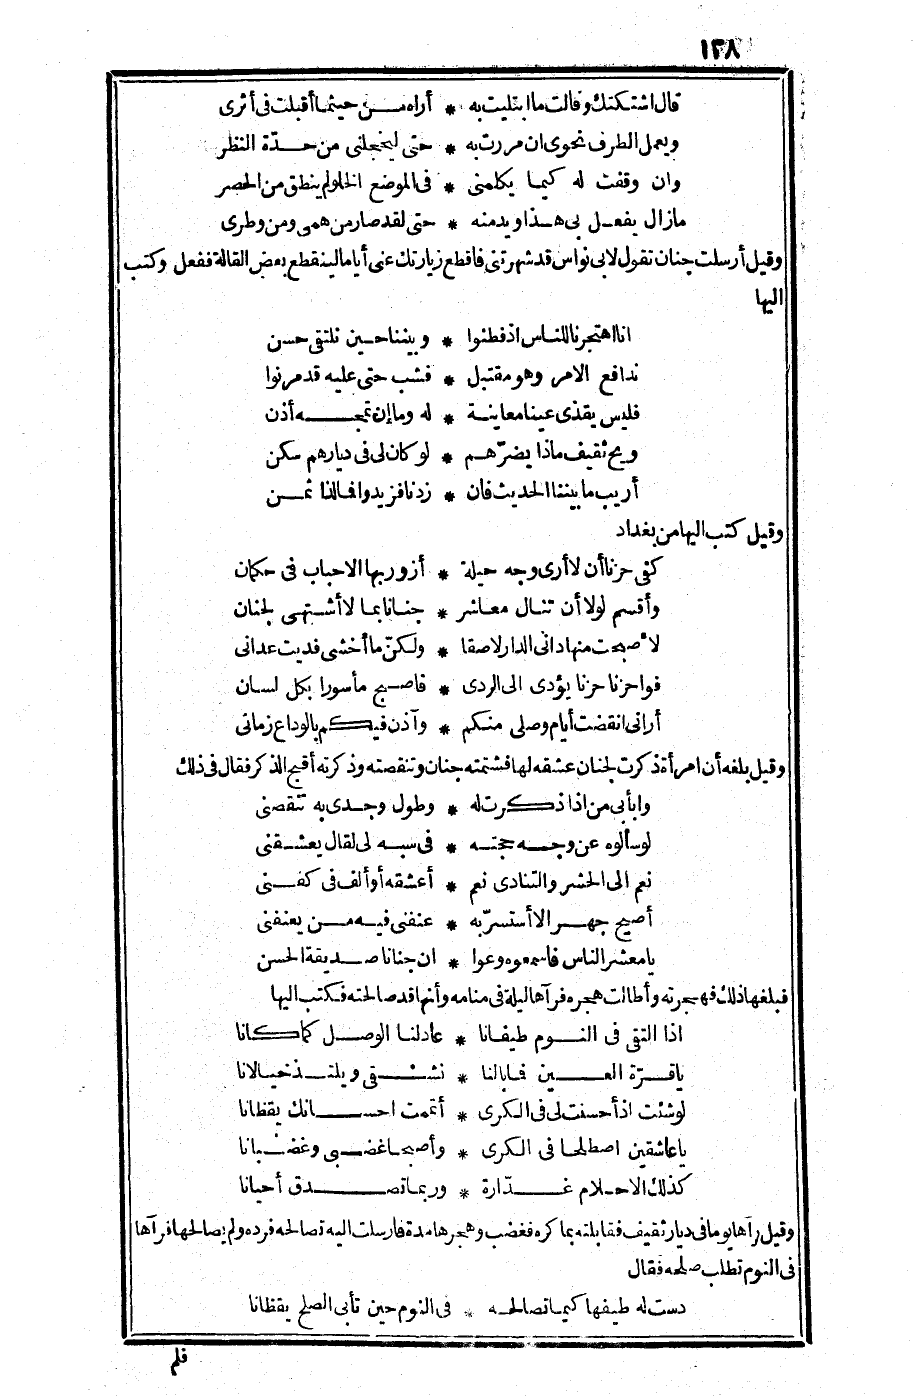 ١٣٨
قال اشتكتك وقالت ما ابتليت به * أراه من حيثما أقبلت فى أثرى
ويعمل الطرف نحوى ان مررت به * حتى ليخجلنى من حدّة النظر
وان وقفت له كيما يكلمنى * فى الموضع الخلو لم ينطق من الحصر
مازال يفعل بى هذا ويدمنه * حتى لقد صار من همى ومن وطرى
وقيل أرسلت جنان تقول لابى نواس قد شهرتنى فاقطع زيارتك عنى أياما لينقطع بعض القالة ففعل وكتب
اليها
انا اهتجرنا للناس اذ فطنوا * وبيننا حين نلتقى حسن
ندافع الامر وهو مقتبل * فشب حتى عليه قد مرنوا
فليس يقذى عينا معاينة * له وما إن تمجه أذن
ويح ثقيف ماذا يضرّهم * لو كان لى فى ديارهم سكن
أريب ما بيننا الحديث فان * زدنا فزيدوا فما لذا ثمن
وقيل كتب اليها من بغداد
كفى حزنا أن لا أرى وجه حيلة * أزور بها الاحباب فى حكمان
وأقسم لولا أن تنال معاشر * جنانا بما لا أشتهى لجنان
لأصبحت منها دانى الدار لاصقا * ولكنّ ما أخشى فديت عدانى
فواحزنا حزنا يؤدى الى الردى * فاصبح مأسورا بكل لسان
أرانى انقضت أيام وصلى منكم * وآذن فيكم بالوداع زمانى
وقيل بلغه أن امرأة ذكرت لجنان عشقه لها فشتمته جنان وتنقصته وذكرته أقبح الذكر فقال فى ذلك
وابأبى من اذا ذكرت له * وطول وجدى به تنقصنى
لو سألوه عن وجه حجته * فى سبه لى لقال يعشقنى
نعم الى الحشر والتنادى نعم * أعشقه أو ألف فى كفنى
أصيح جهرا لا أستسرّ به * عنفنى فيه من يعنفنى
يا معشر الناس فاسمعوه وعوا * ان جنانا صديقة الحسن
فبلغها ذلك فهجرته وأطالت هجره فرآها ليلة فى منامه وأنها قد صالحته فكتب اليها
اذا التقى فى النوم طيفانا * عاد لنا الوصل كما كانا
يا قرّة العين فما بالنا * نشقى ويلتذ خيالانا
لو شئت اذ أحسنت لى فى الكرى * أتممت احسانك يقظانا
يا عاشقين اصطلحا فى الكرى * وأصبحا غضبى وغضبانا
كذلك الاحلام غدّارة * وربما تصدق أحيانا
وقيل رآها يوما فى ديار ثقيف فقابلته بما كره فغضب وهجرها مدة فارسلت اليه تصالحه فرده ولم يصالحها فرآها
فى النوم تطلب صلحه فقال
دست له طيفها كيما تصالحه * فى النوم حين تأبى الصلح يقظانا
فلم